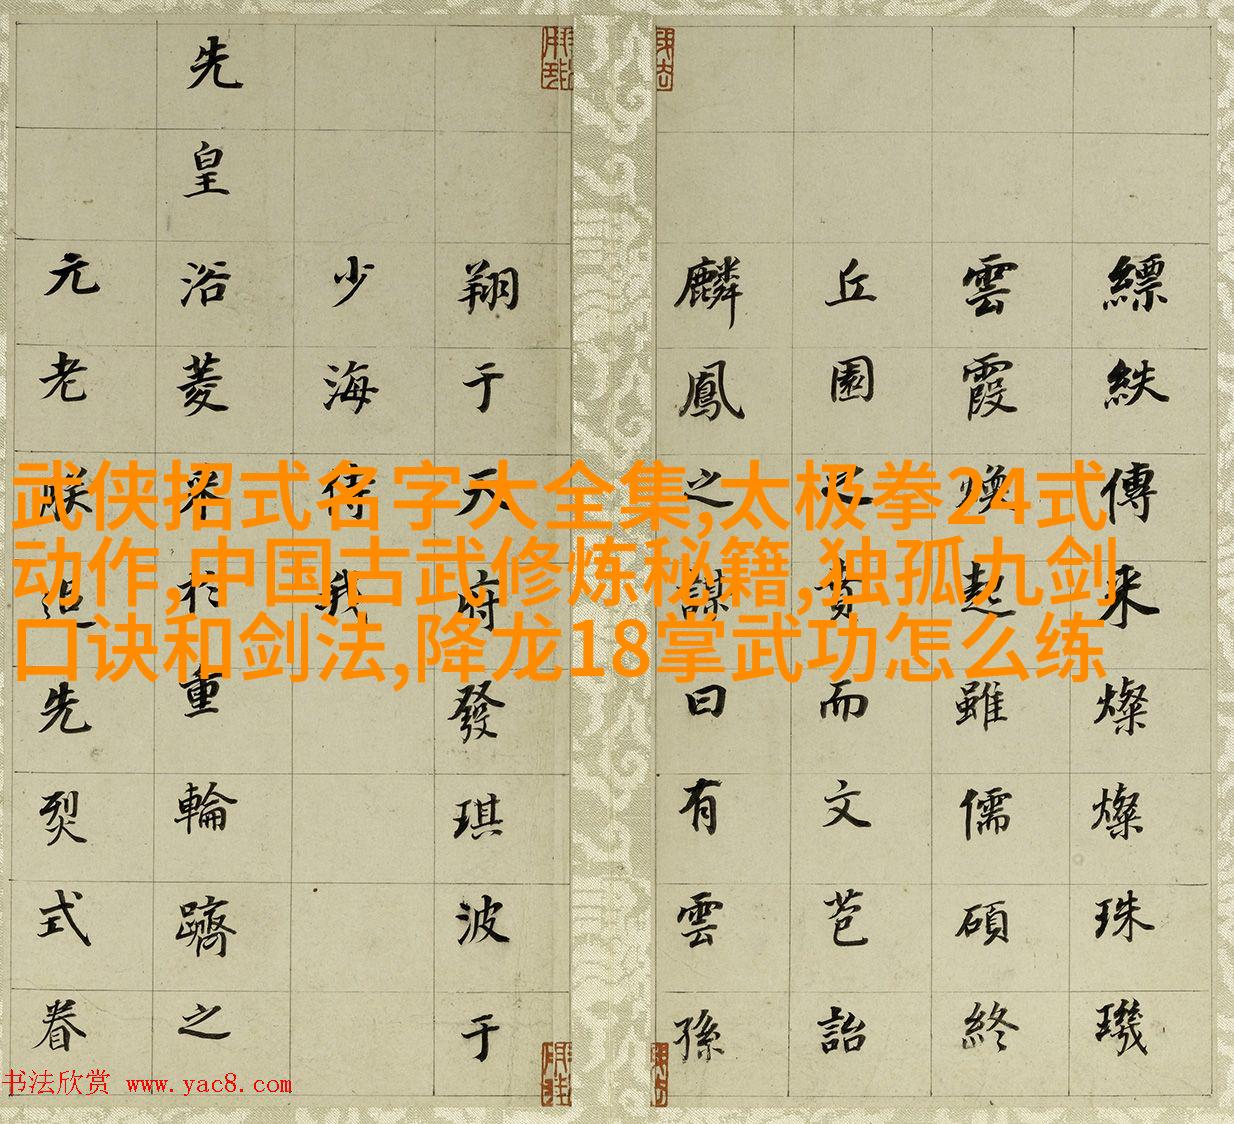 縹紩傳来燦燦珠璣
雲霞煥起雖儒碩終
丘園賁而文芑詒
麟鳳之謀曰有雲孫
翔于天府發琪波于
少海侍我
先皇浴菱于重輪躋之
元老先烈式眷
武侠招式名字大全集,太极拳24式
动作,中国古武修炼秘籍,独孤九剑
口诀和剑法,降龙18掌武功怎么练
书法欣赏 www.yac8.com